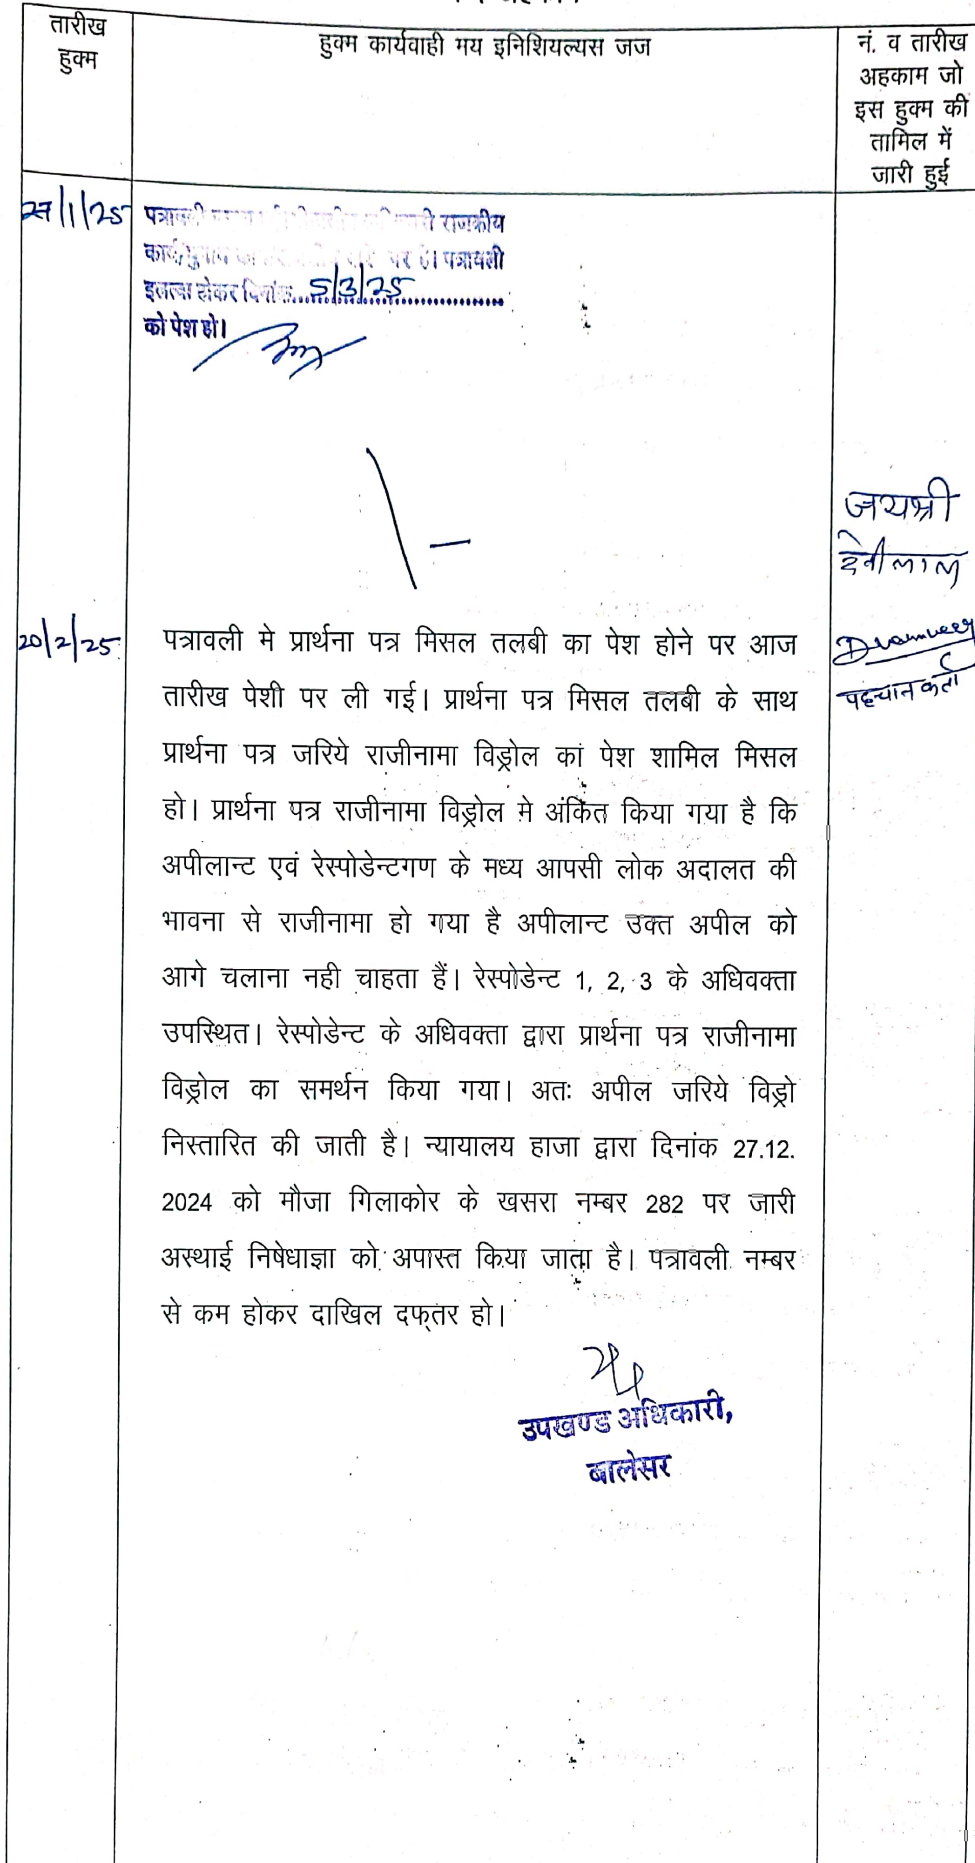 तारीख
हुक्म
हुक्म कार्यवाही मय इनिशियल्यस जज
नं. व तारीख
अहकाम जो
इस हुक्म की
तामिल में
जारी हुई
27/1/25
राजकीय
पर है। पत्रावली
इलत्वा होकर दिनांक....5/3/25..............
को पेश हो।
जयश्री
देवीलाल
20/2/25
पत्रावली मे प्रार्थना पत्र मिसल तलबी का पेश होने पर आज
तारीख पेशी पर ली गई। प्रार्थना पत्र मिसल तलबी के साथ
प्रार्थना पत्र जरिये राजीनामा विड्रोल कां पेश शामिल मिसल
हो। प्रार्थना पत्र राजीनामा विड्रोल मे अंकित किया गया है कि
अपीलान्ट एवं रेस्पोडेन्टगण के मध्य आपसी लोक अदालत की
भावना से राजीनामा हो गया है अपीलान्ट उक्त अपील को
आगे चलाना नही चाहता हैं। रेस्पोडेन्ट 1, 2, 3 के अधिवक्ता
उपस्थित। रेस्पोडेन्ट के अधिवक्ता द्वारा प्रार्थना पत्र राजीनामा
विड्रोल का समर्थन किया गया। अतः अपील जरिये विड्रो
निस्तारित की जाती है। न्यायालय हाजा द्वारा दिनांक 27.12.
2024 को मौजा गिलाकोर के खसरा नम्बर 282 पर जारी
अस्थाई निषेधाज्ञा को अपास्त किया जाता है। पत्रावली नम्बर
से कम होकर दाखिल दफ्तर हो।
पहचान कर्ता
उपखण्ड अधिकारी,
बालेसर